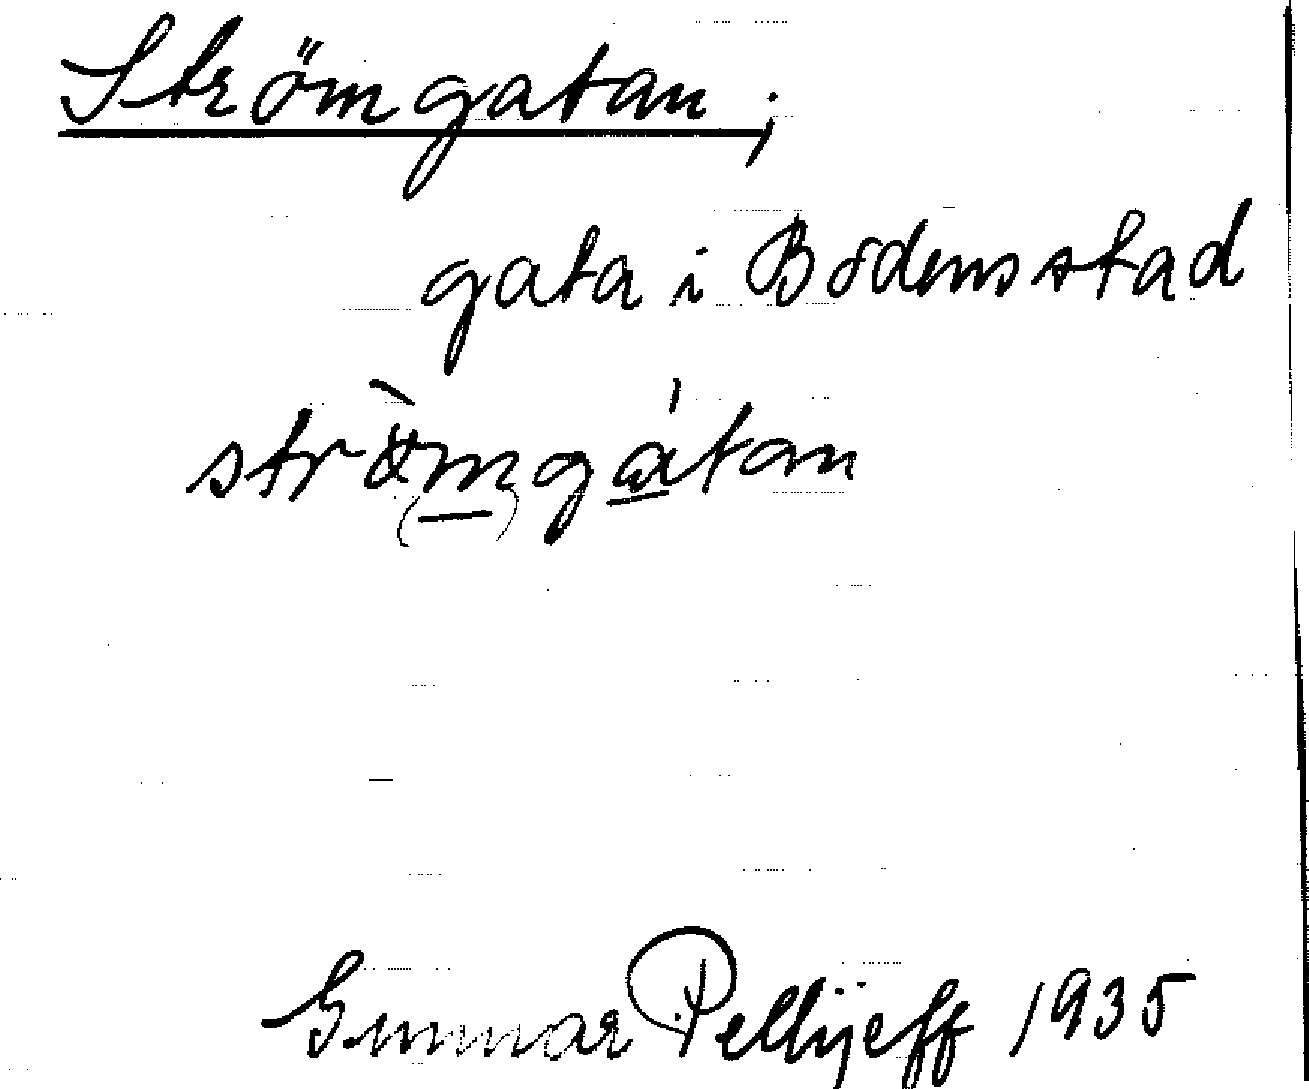 Strömgatan;
gata i Bodens stad
strö̀mgátan
Gunnar Pellijeff 1935